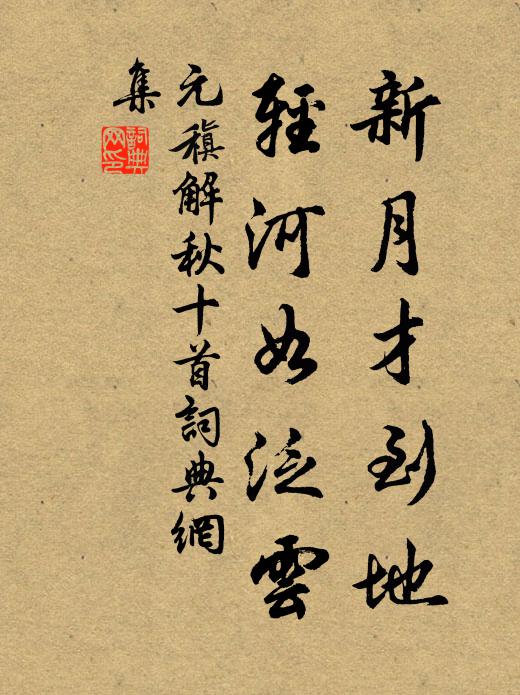 新月才到地
輕河如泛雲
元稹解秋十首詞典網
集
詞典网印